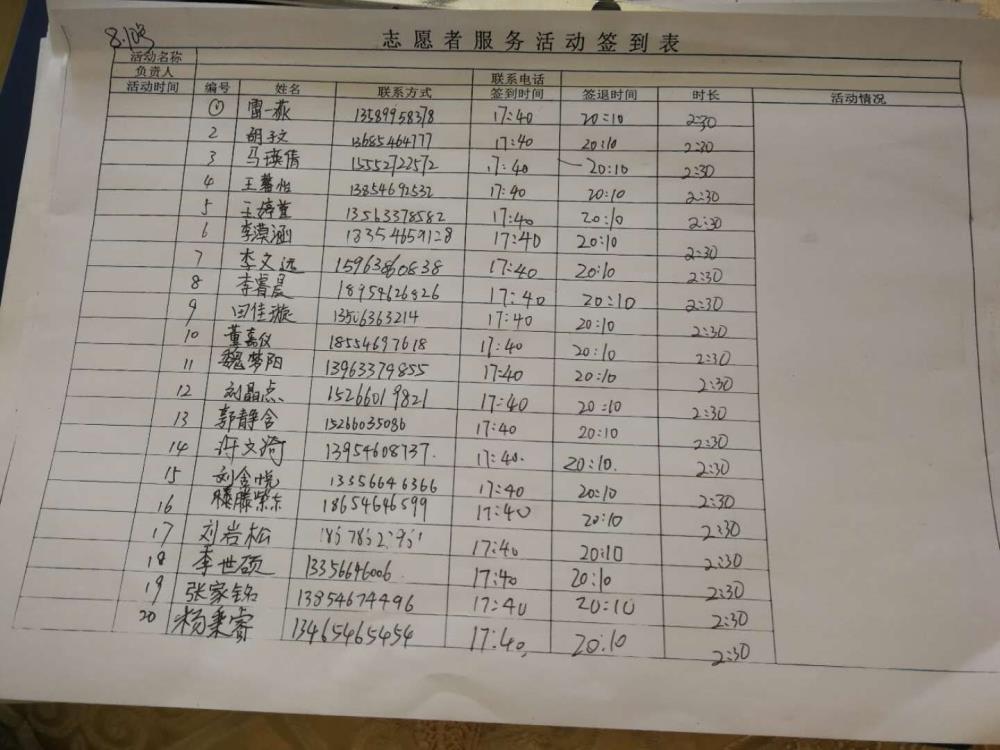 志愿者服务活动签到表
活动名称
负责人 联系电话
活动时间 编号 姓名 联系方式 签到时间 签退时间 时长 活动情况
① 雷一 13589958378 17:40 20:10 2:30
2 胡子文 13685464777 17:40 20:10 2:30
3 马瑛倩 15552722572 17:40 20:10 2:30
4 王馨怡 13854692532 17:40 20:10 2:30
5 王婷萱 13563378582 17:40 20:10 2:30
6 李漠涵 18354659128 17:40 20:10 2:30
7 李文远 15963860838 17:40 20:10 2:30
8 李睿晨 18954626826 17:40 20:10 2:30
9 田佳璇 13506363214 17:40 20:10 2:30
10 董嘉仪 18554697618 17:40 20:10 2:30
11 魏梦阳 13963379855 17:40 20:10 2:30
12 刘晶点 15266019821 17:40 20:10 2:30
13 郭静含 15266035086 17:40 20:10 2:30
14 许文琦 13954608737. 17:40. 20:10. 2:30
15 刘金悦 13356646366 17:40 20:10 2:30
16 滕紫东 18654646599 17:40 20:10 2:30
17 刘岩松 17:40 20:10 2:30
18 李世硕 13356646006 17:40 20:10 2:30
19 张家铭 13854674496 17:40 20:10 2:30
20 杨秉睿 13465465454 17:40. 20:10 2:30